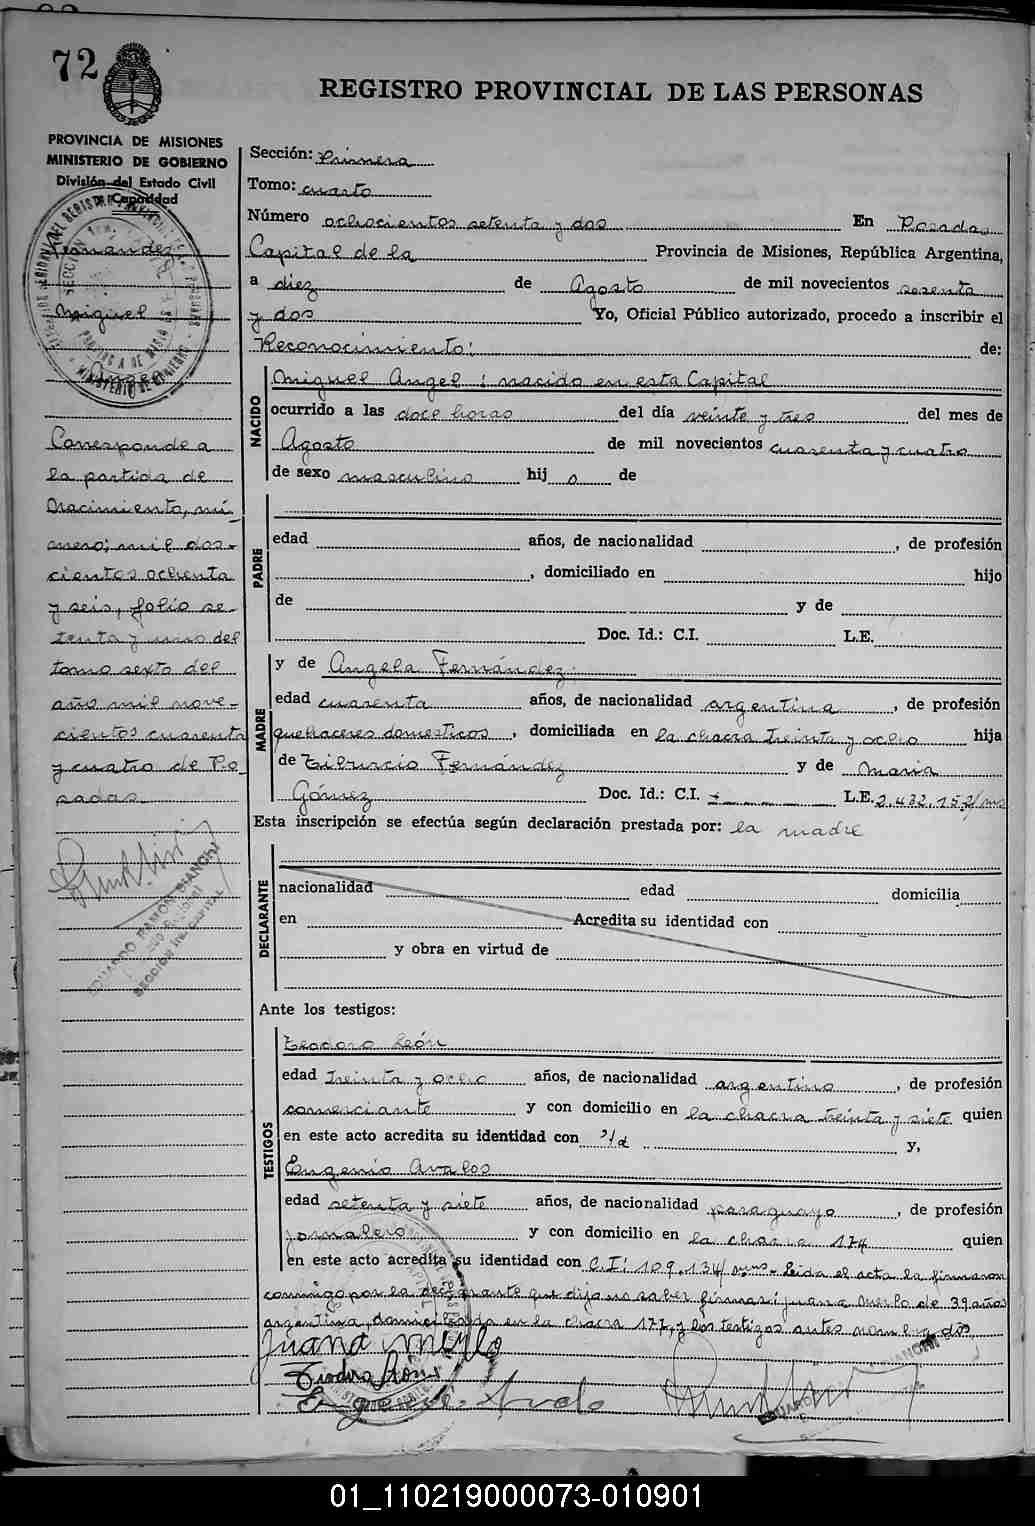 72
REGISTRO PROVINCIAL DE LAS PERSONAS
PROVINCIA DE MISIONES
MINISTERIO DE GOBIERNO
División del Estado Civil
y Capacidad
Fernandez
Miguel
Angel
Corresponde a
la partida de
Nacimiento, nú-
mero; mil dos-
cientos ochenta
y seis, folio se-
tenta y uno del
tomo sexto del
año mil nove-
cientos cuarenta
y cuatro de Po-
sadas.
EDUARDO RAMON BIANCHI
SECCION 1ra. CAPITAL
Sección: Primera
Tomo: cuarto
Número ochocientos setenta y dos En Posadas
Capital de la Provincia de Misiones, República Argentina,
a diez de Agosto de mil novecientos sesenta
y dos Yo, Oficial Público autorizado, procedo a inscribir el
Reconocimiento: de:
NACIDO
Miguel Angel: nacido en esta Capital
ocurrido a las doce horas del día veinte y tres del mes de
Agosto de mil novecientos cuarenta y cuatro
de sexo masculino hij o de
PADRE
edad años, de nacionalidad , de profesión
, domiciliado en hijo
de y de
Doc. Id.: C.I. L.E.
MADRE
y de Angela Fernández:
edad cuarenta años, de nacionalidad argentina , de profesión
quehaceres domesticos , domiciliada en la chacra treinta y ocho hija
de Tiburcio Fernández y de Maria
Gómez Doc. Id.: C.I. L.E. 2.432.152/ms
Esta inscripción se efectúa según declaración prestada por: la madre
DECLARANTE
nacionalidad edad domicilia
en Acredita su identidad con
y obra en virtud de
Ante los testigos:
TESTIGOS
Teodoro León
edad treinta y ocho años, de nacionalidad argentino , de profesión
comerciante y con domicilio en la chacra treinta y siete quien
en este acto acredita su identidad con y,
Eugenio Avalos
edad setenta y siete años, de nacionalidad paraguayo , de profesión
jornalero y con domicilio en la chacra 174 quien
en este acto acredita su identidad con C.I: 109.134/ Leida el acta la firmaron
conmigo por la declarante que dijo no saber firmar: juana Merlo de 39 años
argentina, domiciliada en la chacra 177, y los testigos antes nombrados
juana merlo
01_110219000073-010901